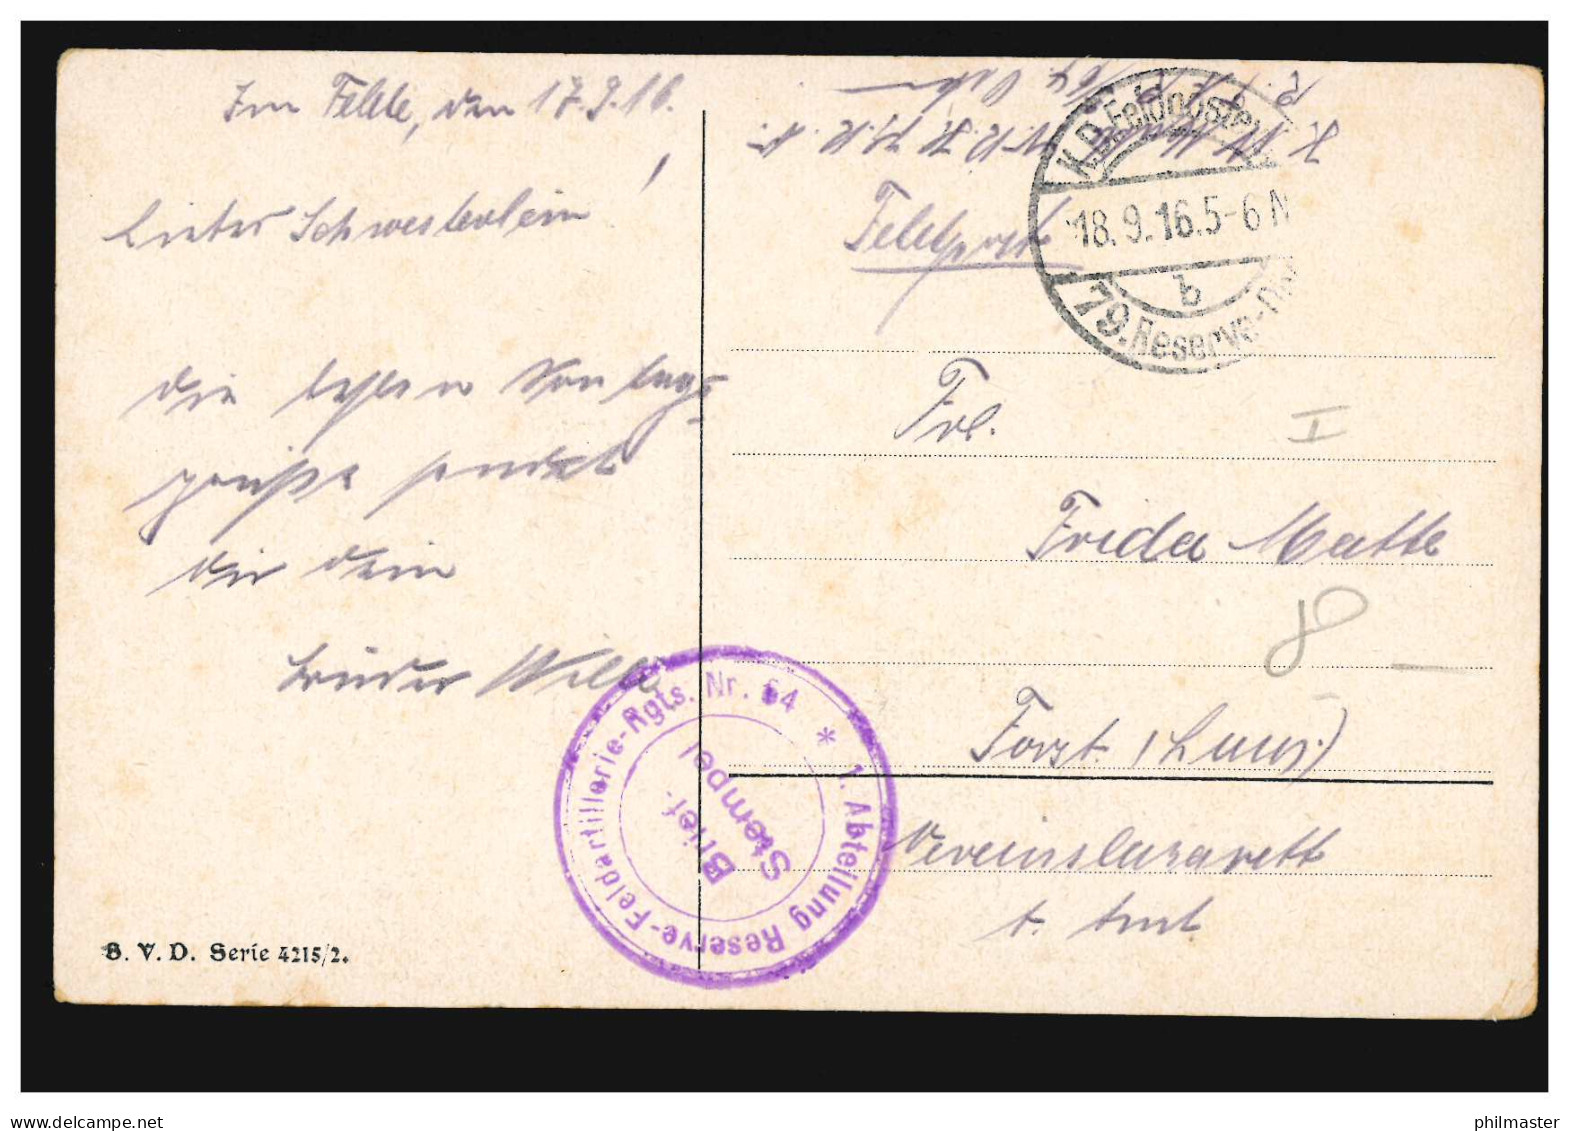 Im Felde, den 17.9.16.
Liebes Schwesterlein!
Die besten Sonntags-
grüße sendet
dir dein
Bruder Willi
S. V. D. Serie 4215/2.
K.D. Feldpost
18.9.16.5-6N
b
79. Reserve-Di
Feldpost
Frl.
I
Frida Matte
8
Forst (Laus.)
Vereinslazarett
1. Abteilung Reserve-Feldartillerie-Rgts. Nr. 64 *
Brief-
Stempel
delcampe.net
philmaster